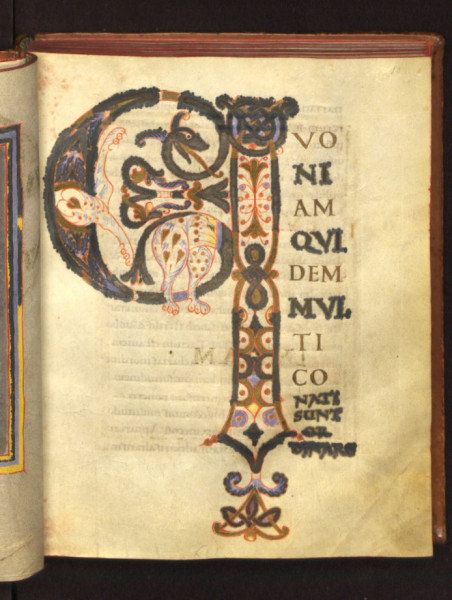 Q
VO
NI
AM
QVI.
DEM
MVL
TI
CO
NATI
SUNT
OR
DINARE